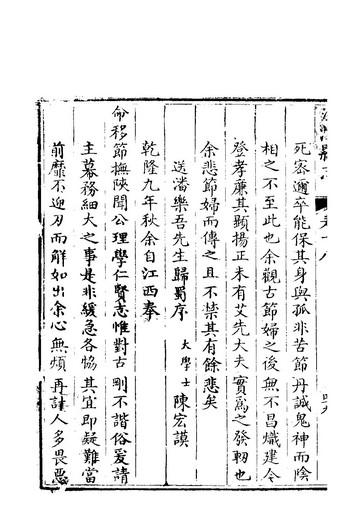 死寄邇卒能保其身與孤非苦節丹誠鬼神而陰
相之不至此也余觀古節婦之後無不昌熾建令
登孝廉其顯揚正未有艾先大夫實爲之發軔也
余悲節婦而傳之且不禁其有餘悲矣
送潘樂吾先生歸蜀序
大學士陳宏謨
乾隆九年秋余自江西奉
命移節撫陝聞公理學仁賢志惟對古剛不諧俗爰請
主幕務細大之事是非緩急各協其宜即疑難當
前靡不迎刃而解如出余心無煩再計人多畏惡